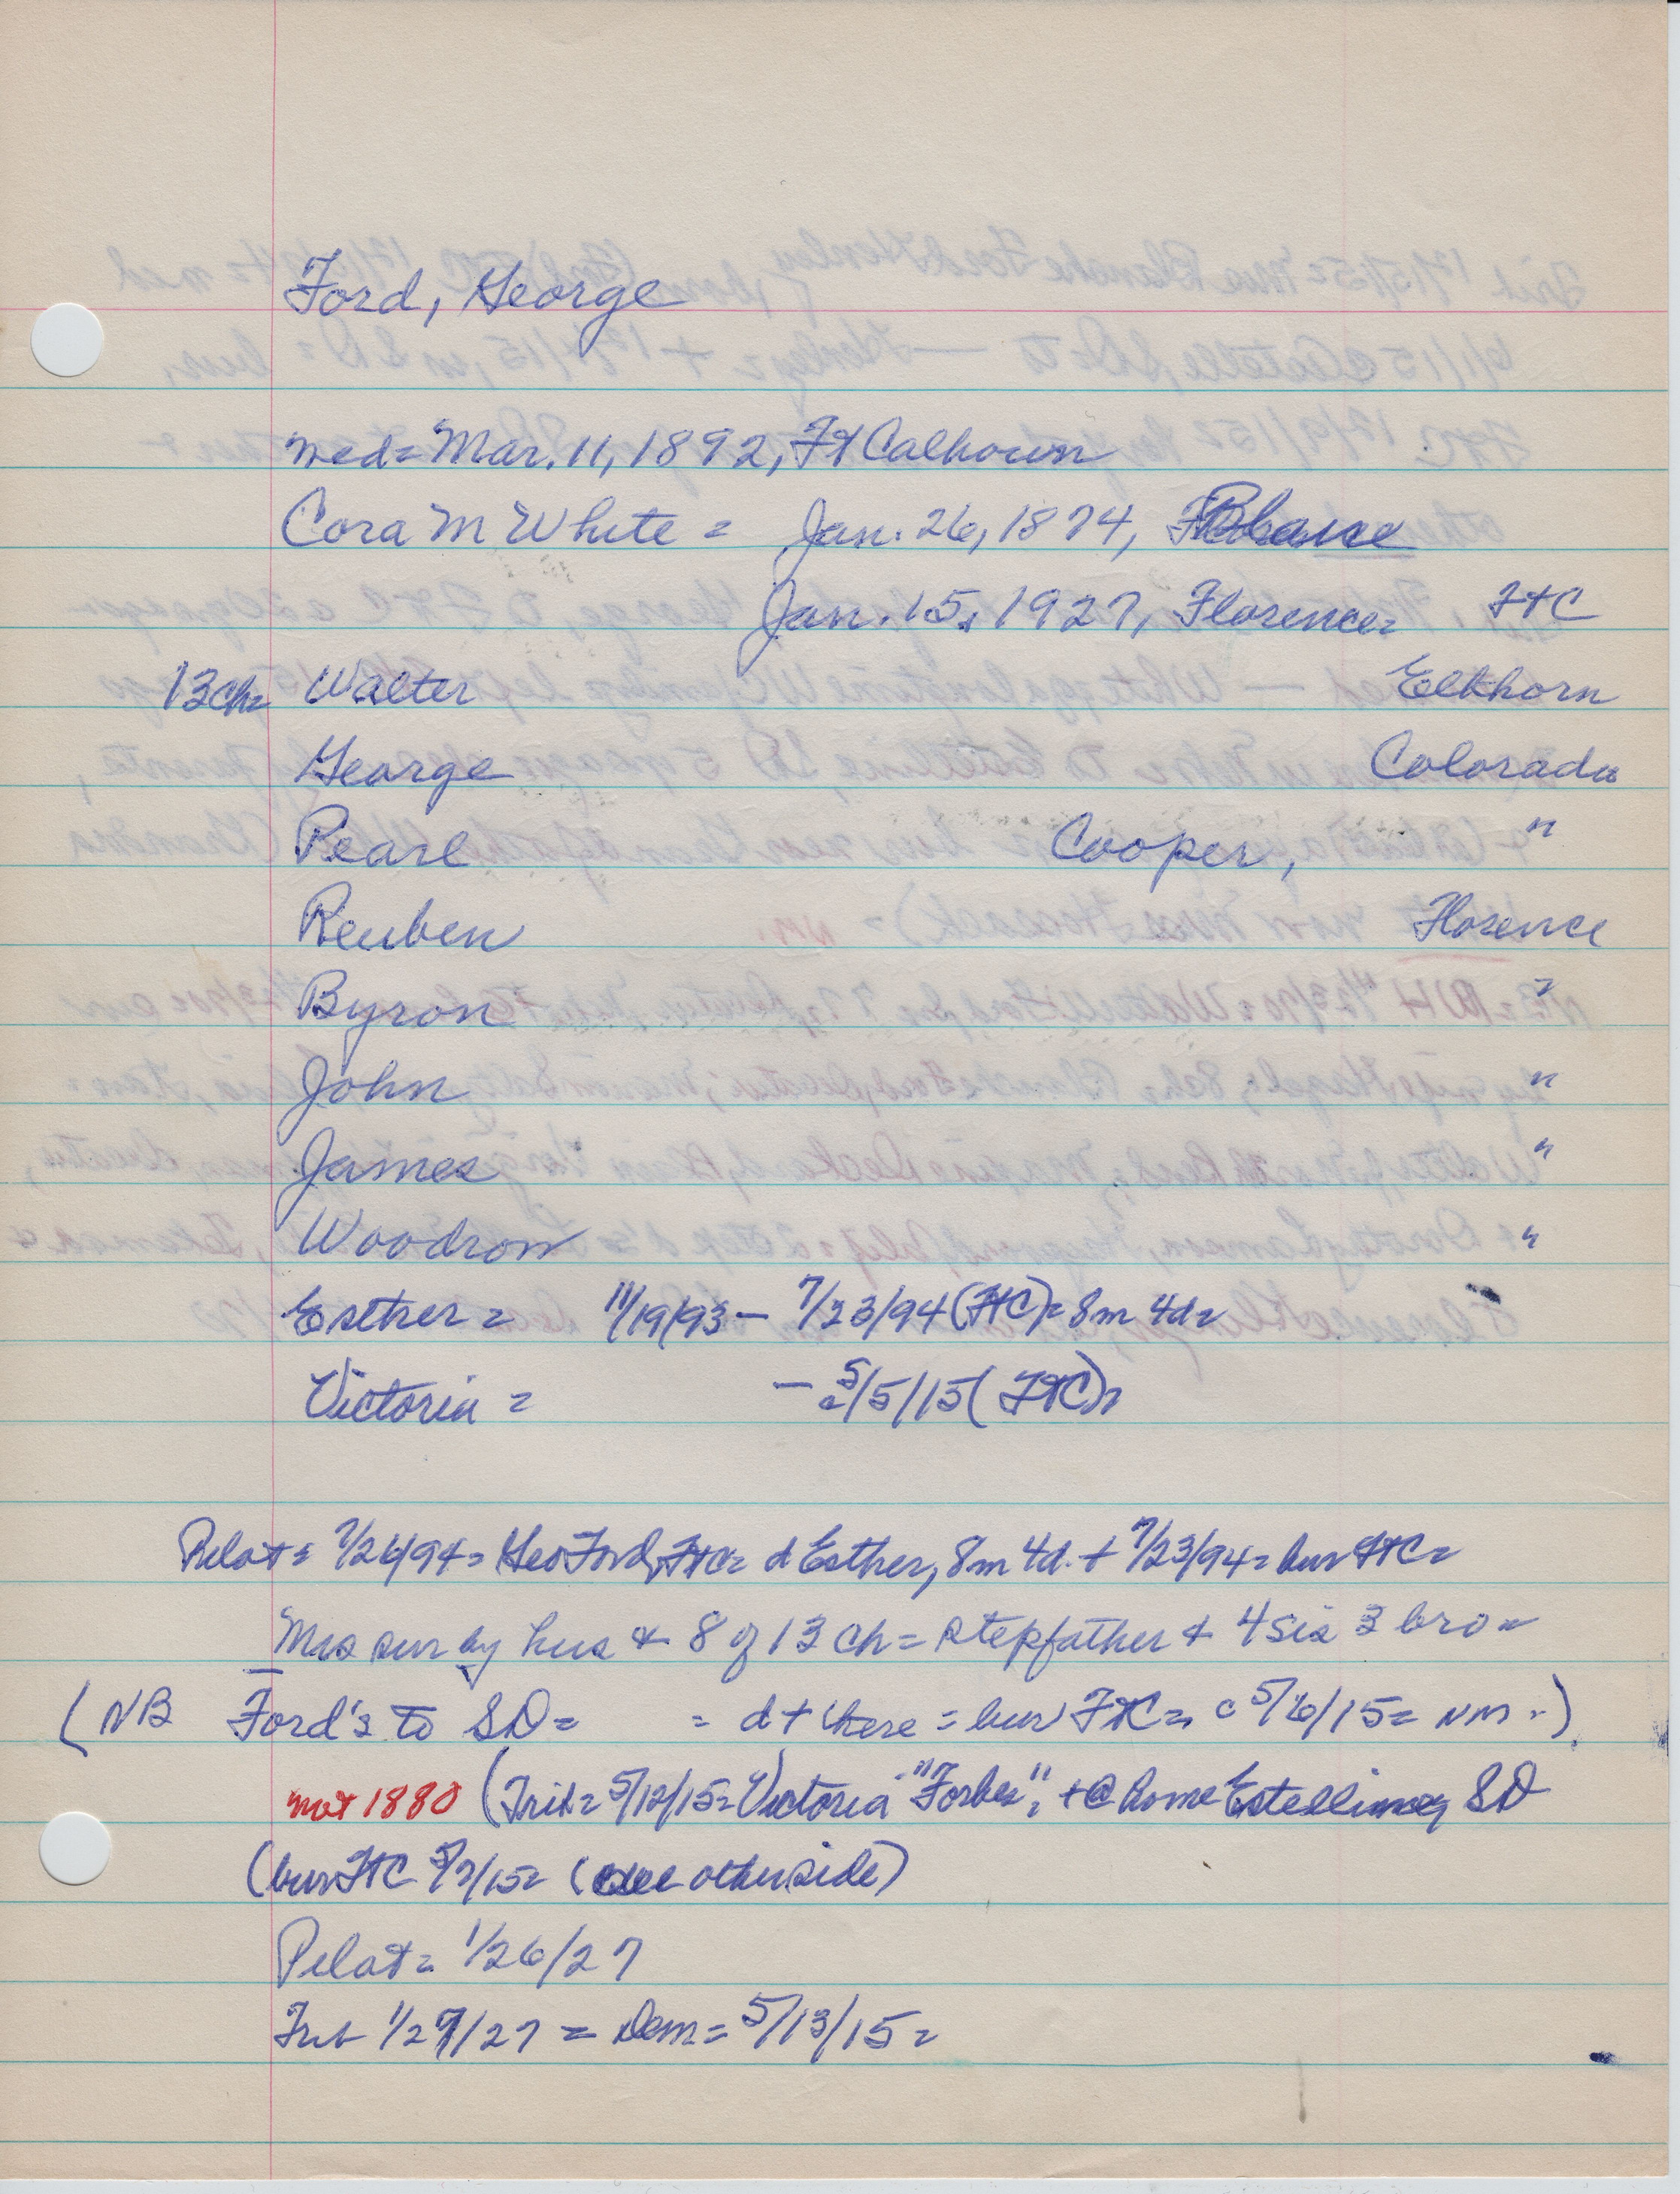 Ford, George
med= Mar. 11, 1892, Ft Calhoun
Cora M White = Jan. 26, 1874,
Jan. 15, 1927, Florence= FtC
13ch= Walter Elkhorn
George Colorado
Pearl Cooper, "
Reuben Florence
Byron "
John "
James "
Woodrow "
Esther = 11/19/93 - 7/23/94 (FtC)= 8m 4d=
Victoria = - 5/5/15 (FtC)=
Pilot= 7/26/94= Geo Ford, FtC= d Esther, 8m 4d. + 7/23/94= bur FtC=
Mrs sur by hus & 8 of 13 ch= stepfather & 4 sis 3 bro=
(NB Ford's to SD= = d + there = bur FtC= c 5/6/15= NM.)
not 1880 (Trib= 5/12/15= Victoria "Forbes", + @ home Estelline, SD
(bur FtC 5/7/15= (see other side)
Pilot= 1/26/27
Trib 1/27/27 = Dem= 5/13/15=